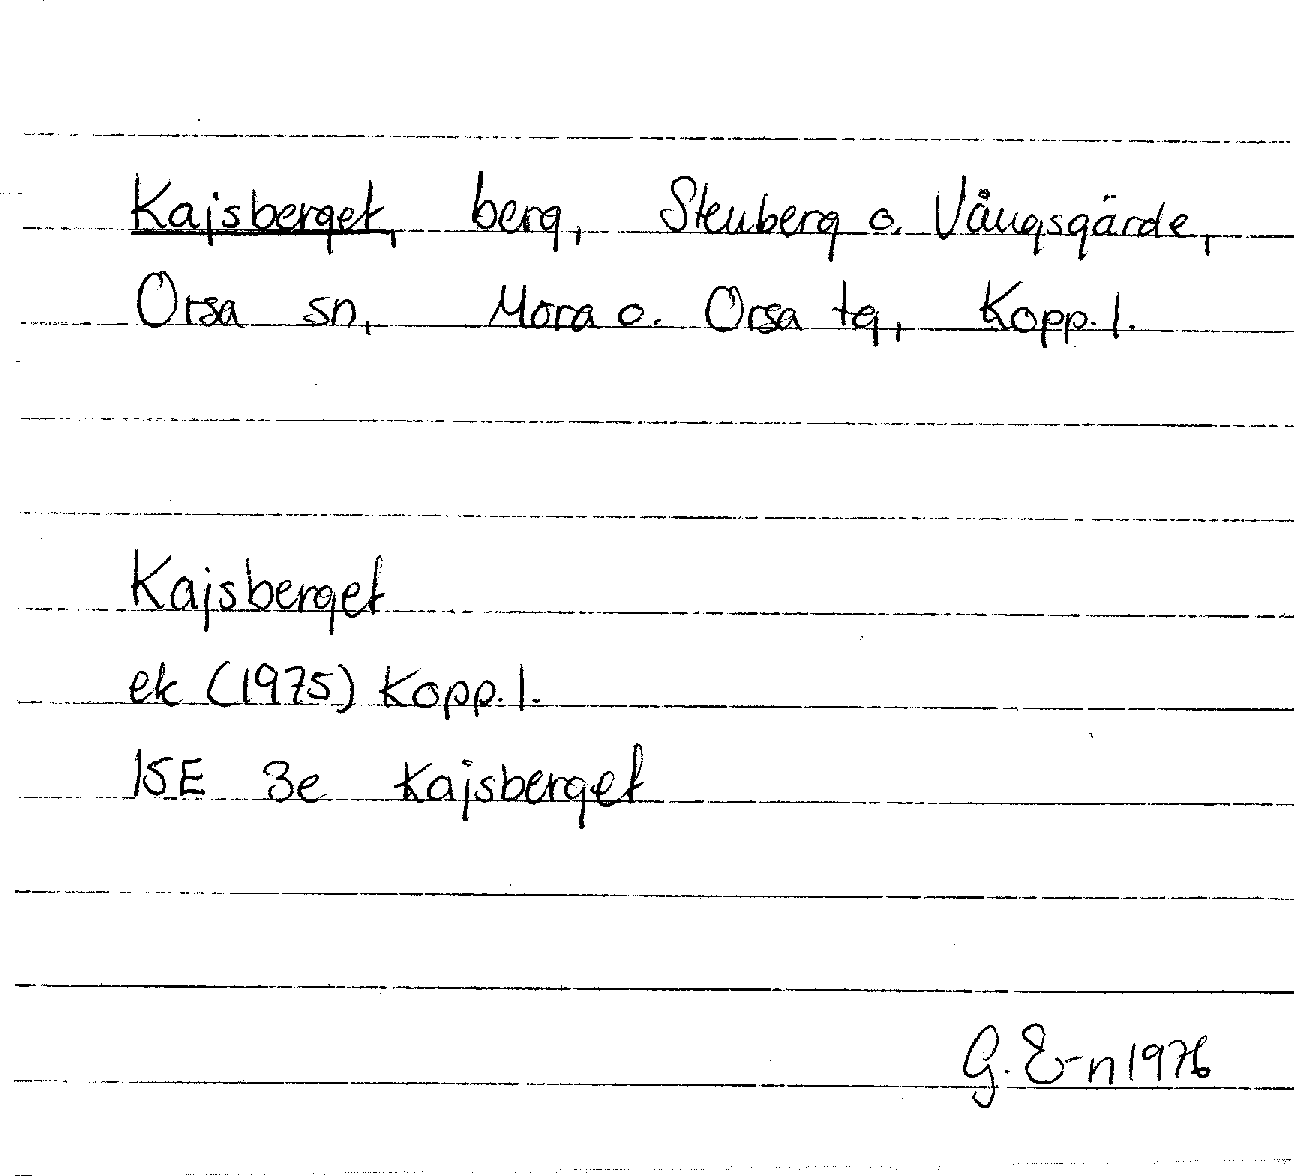 Kajsberget, berg, Stenberg o. Vångsgärde,
Orsa sn, Mora o. Orsa tg, Kopp. l.
Kajsberget
ek (1975) Kopp. l.
15E 3e Kajsberget
G. E-n 1976